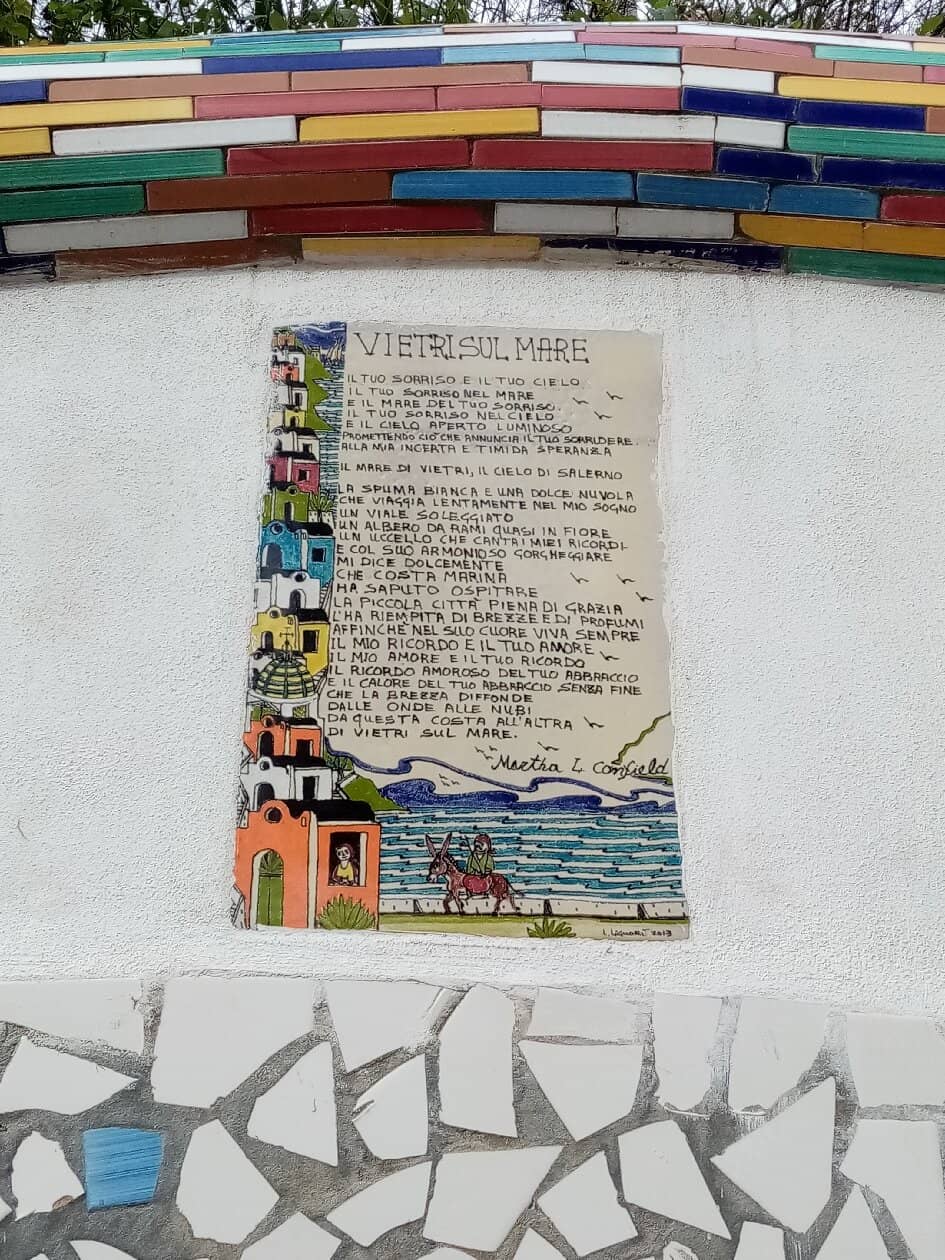 VIETRI SUL MARE
IL TUO SORRISO E IL TUO CIELO
IL TUO SORRISO NEL MARE
E IL MARE DEL TUO SORRISO.
IL TUO SORRISO NEL CIELO
E IL CIELO APERTO LUMINOSO
PROMETTENDO CIÒ CHE ANNUNCIA IL TUO SORRIDERE.
ALLA MIA INCERTA E TIMIDA SPERANZA
IL MARE DI VIETRI, IL CIELO DI SALERNO
LA SPUMA BIANCA E UNA DOLCE NUVOLA
CHE VIAGGIA LENTAMENTE NEL MIO SOGNO
UN VIALE SOLEGGIATO
UN ALBERO DA RAMI QUASI IN FIORE
UN UCCELLO CHE CANTA I MIEI RICORDI
E COL SUO ARMONIOSO GORGHEGGIARE
MI DICE DOLCEMENTE
CHE COSTA MARINA
HA SAPUTO OSPITARE
LA PICCOLA CITTÀ PIENA DI GRAZIA
L'HA RIEMPITA DI BREZZE E DI PROFUMI
AFFINCHÈ NEL SUO CUORE VIVA SEMPRE
IL MIO RICORDO E IL TUO AMORE
IL MIO AMORE E IL TUO RICORDO
IL RICORDO AMOROSO DEL TUO ABBRACCIO
E IL CALORE DEL TUO ABBRACCIO SENZA FINE
CHE LA BREZZA DIFFONDE
DALLE ONDE ALLE NUBI
DA QUESTA COSTA ALL'ALTRA
DI VIETRI SUL MARE.
Martha L. Canfield
2013